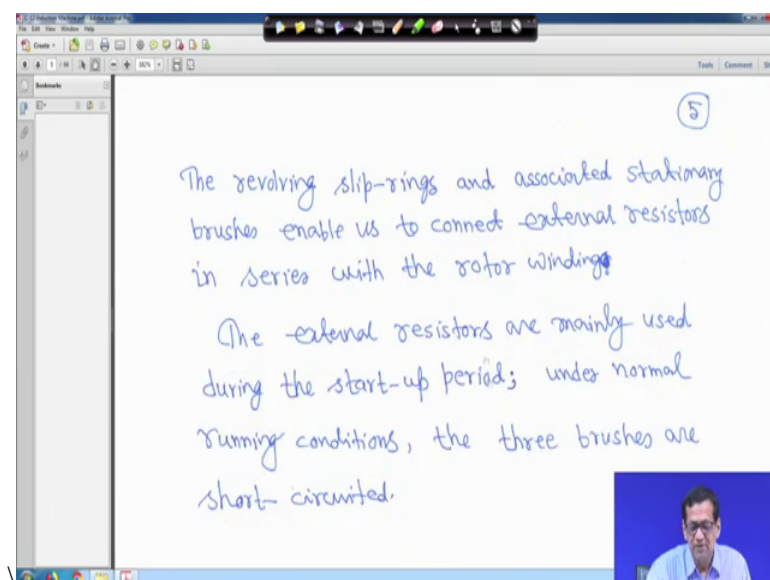 File Edit View Window Help
Create
5 / 64
382%
Tools Comment
Bookmarks
5
The revolving slip-rings and associated stationary
brushes enable us to connect external resistors
in series with the rotor winding.
The external resistors are mainly used
during the start-up period; under normal
running conditions, the three brushes are
short-circuited.